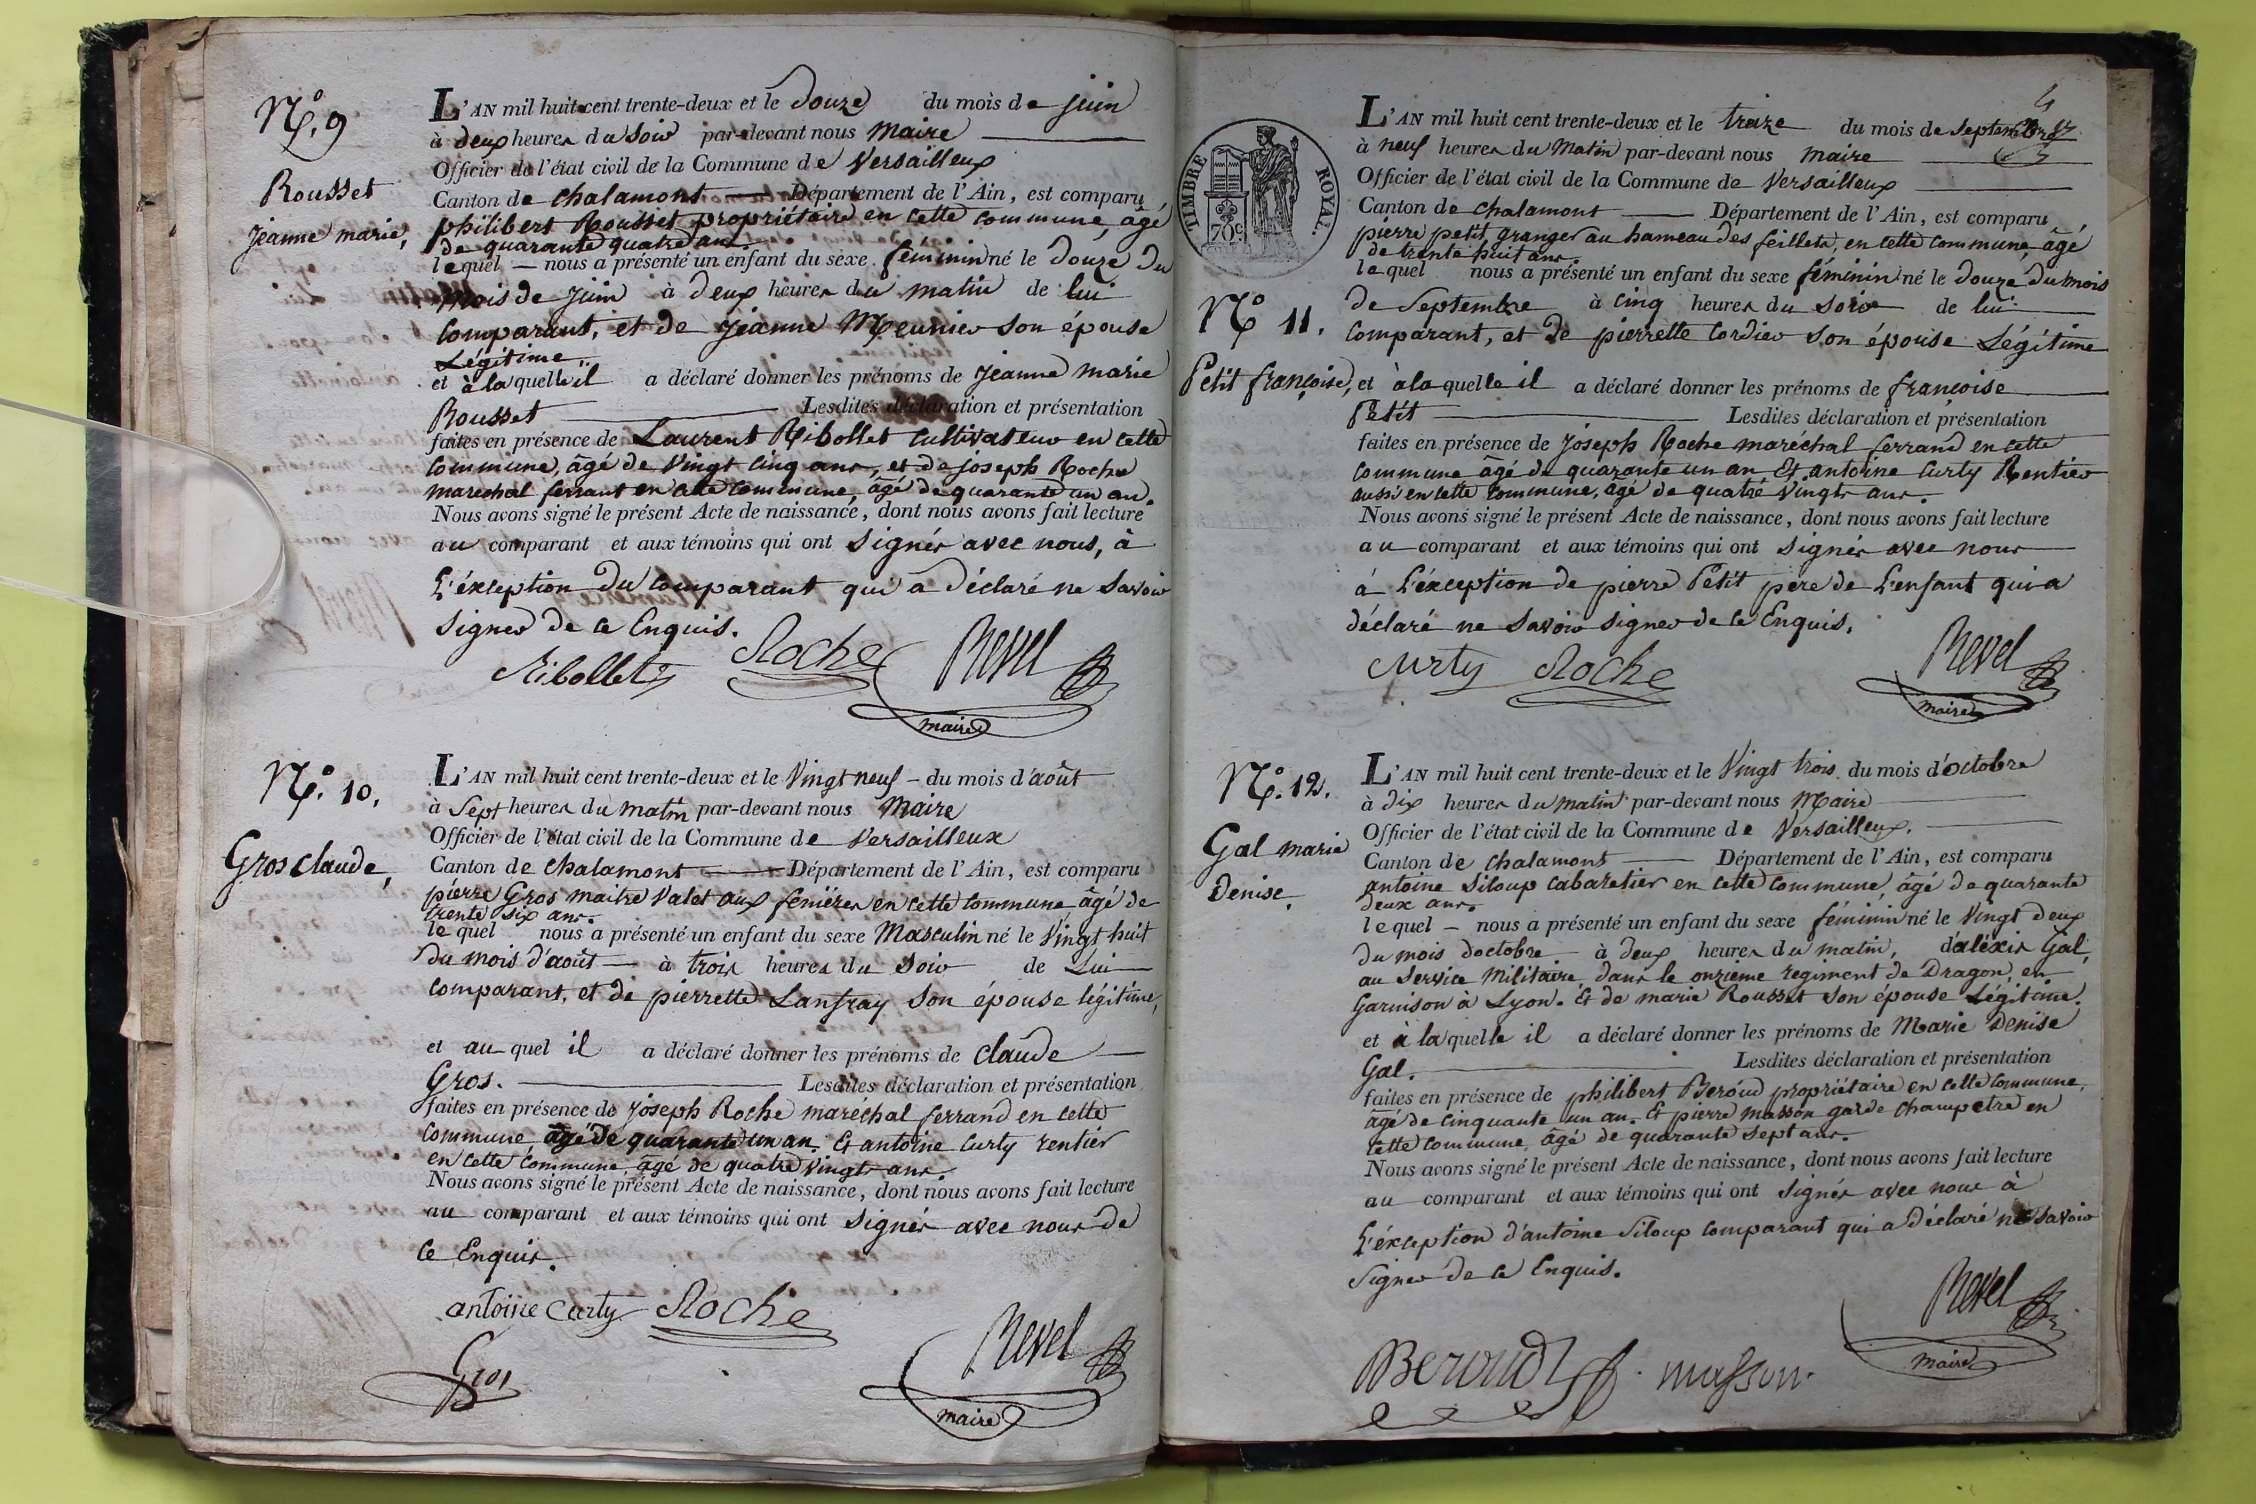 N.° 9
Rousset
Jeanne marie,
L'AN mil huit cent trente-deux et le Douze du mois de juin
à deux heures du Soir par-devant nous Maire
Officier de l'état civil de la Commune de Versailleux
Canton de Chalamont Département de l'Ain, est comparu
philibert Rousset propriétaire en cette commune, âgé
de quarante quatre ans.
lequel nous a présenté un enfant du sexe féminin né le Douze Du
mois de Juin à Deux heures du matin de lui
Comparant, et de Jeanne Meunier son épouse
Légitime.
et à laquelle il a déclaré donner les prénoms de Jeanne marie
Rousset Lesdites déclaration et présentation
faites en présence de Laurent Ribollet cultivateur en cette
Commune, âgé de Vingt cinq ans, et de joseph Roche
marechal ferrant en cette commune, âgé de quarante un an.
Nous avons signé le présent Acte de naissance, dont nous avons fait lecture
au comparant et aux témoins qui ont Signés avec nous, à
L'éxception Du Comparant qui a Déclaré ne Savoir
Signer de ce Enquis.
Ribollet Roche Revel
maire
N.° 10.
Gros claude,
L'AN mil huit cent trente-deux et le Vingt neuf du mois d'août
à Sept heures du matin par-devant nous Maire
Officier de l'état civil de la Commune de Versailleux
Canton de Chalamont Département de l'Ain, est comparu
pierre Gros maitre Valet aux feniéres en cette commune âgé de
trente six ans.
lequel nous a présenté un enfant du sexe Masculin né le Vingt huit
Du mois d'août à trois heures du Soir de Lui
Comparant, et de pierrette Lanfray Son épouse légitime,
et auquel il a déclaré donner les prénoms de Claude
Gros. Lesdites déclaration et présentation
faites en présence de Joseph Roche maréchal ferrand en cette
Commune âgé De quarante un an. Et antoine Curty rentier
en cette Commune, âgé de quatre Vingts ans.
Nous avons signé le présent Acte de naissance, dont nous avons fait lecture
au comparant et aux témoins qui ont Signés avec nous de
ce Enquis.
antoine Curty Roche
Gros Revel
maire
4
TIMBRE ROYAL.
70c
N° 11.
Petit françoise,
L'AN mil huit cent trente-deux et le treize du mois de Septembre
à neuf heures du Matin par-devant nous maire
Officier de l'état civil de la Commune de Versailleux
Canton de Chalamont Département de l'Ain, est comparu
pierre petit granger au hameau des feillets, en cette commune, âgé
de trente huit ans.
lequel nous a présenté un enfant du sexe féminin né le Douze Du mois
de Septembre à Cinq heures du Soir de lui
Comparant, et De pierrette Cordier Son épouse Légitime
et à laquelle il a déclaré donner les prénoms de françoise
Petit Lesdites déclaration et présentation
faites en présence de Joseph Roche maréchal ferrand en cette
Commune âgé de quarante un an Et antoine Curty Rentier
aussi en cette Commune, âgé de quatre Vingts ans.
Nous avons signé le présent Acte de naissance, dont nous avons fait lecture
au comparant et aux témoins qui ont Signés avec nous
à L'éxception de pierre Petit père de L'enfant qui a
déclaré ne Savoir Signer de ce Enquis.
Curty Roche Revel
maire
N.° 12.
Gal marie
Denise.
L'AN mil huit cent trente-deux et le Vingt trois du mois d'octobre
à Dix heures du matin par-devant nous Maire
Officier de l'état civil de la Commune de Versailleux.
Canton de Chalamont Département de l'Ain, est comparu
antoine Siloup Cabaretier en cette commune, âgé de quarante
deux ans.
lequel nous a présenté un enfant du sexe féminin né le Vingt Deux
Du mois Doctobre à Deux heures du matin, d'aléxis Gal,
au Service Militaire, dans le onzième regiment de Dragon, en
Garnison à Lyon. Et de marie Rousset son épouse Légitime.
et à laquelle il a déclaré donner les prénoms de Marie Denise
Gal. Lesdites déclaration et présentation
faites en présence de philibert Beroud propriétaire en cette Commune,
âgé de Cinquante un an. Et pierre masson garde Champetre en
Cette Commune, âgé de quarante Sept ans.
Nous avons signé le présent Acte de naissance, dont nous avons fait lecture
au comparant et aux témoins qui ont Signés avec nous à
L'éxception d'antoine Siloup Comparant qui a Déclaré ne Savoir
Signer de ce Enquis.
Revel
Beroud masson maire